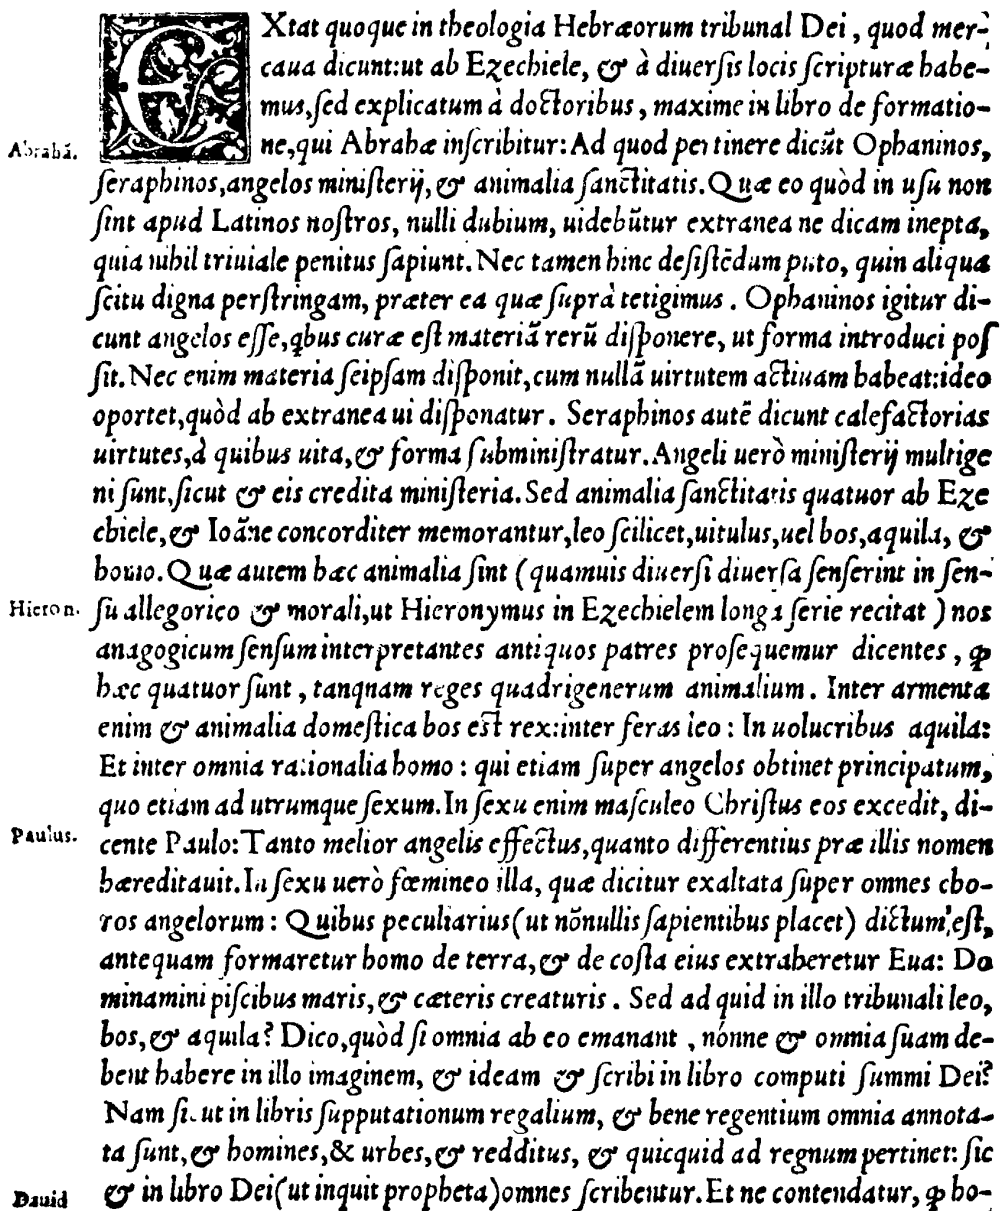 EXtat quoque in theologia Hebræorum tribunal Dei, quod mer-
caua dicunt:ut ab Ezechiele, & à diuersis locis scripturæ habe-
mus,sed explicatum à doctoribus, maxime in libro de formatio-
Abrahã.
ne,qui Abrahæ inscribitur: Ad quod pertinere dicũt Ophaninos,
seraphinos,angelos ministerij,& animalia sanctitatis. Quæ eo quòd in usu non
sint apud Latinos nostros, nulli dubium, uidebũtur extranea ne dicam inepta,
quia nihil triuiale penitus sapiunt. Nec tamen hinc desistẽdum puto, quin aliqua
scitu digna perstringam, præter ea quæ suprà tetigimus. Ophaninos igitur di-
cunt angelos esse,ꝗbus curæ est materiã rerũ disponere, ut forma introduci pos
sit. Nec enim materia seipsam disponit,cum nullã uirtutem actiuam habeat:ideo
oportet,quòd ab extranea ui disponatur. Seraphinos autẽ dicunt calefactorias
uirtutes,à quibus uita,& forma subministratur. Angeli uerò ministerij multige
ni sunt,sicut & eis credita ministeria. Sed animalia sanctitatis quatuor ab Eze
chiele,& Ioãne concorditer memorantur,leo scilicet,uitulus,uel bos,aquila, &
homo. Quæ autem hæc animalia sint (quamuis diuersi diuersa senserint in sen-
Hieron.
su allegorico & morali,ut Hieronymus in Ezechielem longa serie recitat) nos
anagogicum sensum interpretantes antiquos patres prosequemur dicentes, ꝙ
hæc quatuor sunt, tanqnam reges quadrigenerum animalium. Inter armenta
enim & animalia domestica bos est rex:inter feras leo: In uolucribus aquila:
Et inter omnia rationalia homo: qui etiam super angelos obtinet principatum,
quo etiam ad utrumque sexum. In sexu enim masculeo Christus eos excedit, di-
Paulus.
cente Paulo: Tanto melior angelis effectus,quanto differentius præ illis nomen
hæreditauit. In sexu uerò fœmineo illa, quæ dicitur exaltata super omnes cho-
ros angelorum: Quibus peculiarius(ut nõnullis sapientibus placet) dictum est,
antequam formaretur homo de terra,& de costa eius extraheretur Eua: Do
minamini piscibus maris,& cæteris creaturis. Sed ad quid in illo tribunali leo,
bos,& aquila? Dico,quòd si omnia ab eo emanant, nónne & omnia suam de-
bent habere in illo imaginem, & ideam & scribi in libro computi summi Dei?
Nam sicut in libris supputationum regalium, & bene regentium omnia annota-
ta sunt,& homines,& urbes,& redditus, & quicquid ad regnum pertinet: sic
Dauid
& in libro Dei(ut inquit propheta)omnes scribentur. Et ne contendatur, ꝙ ho-